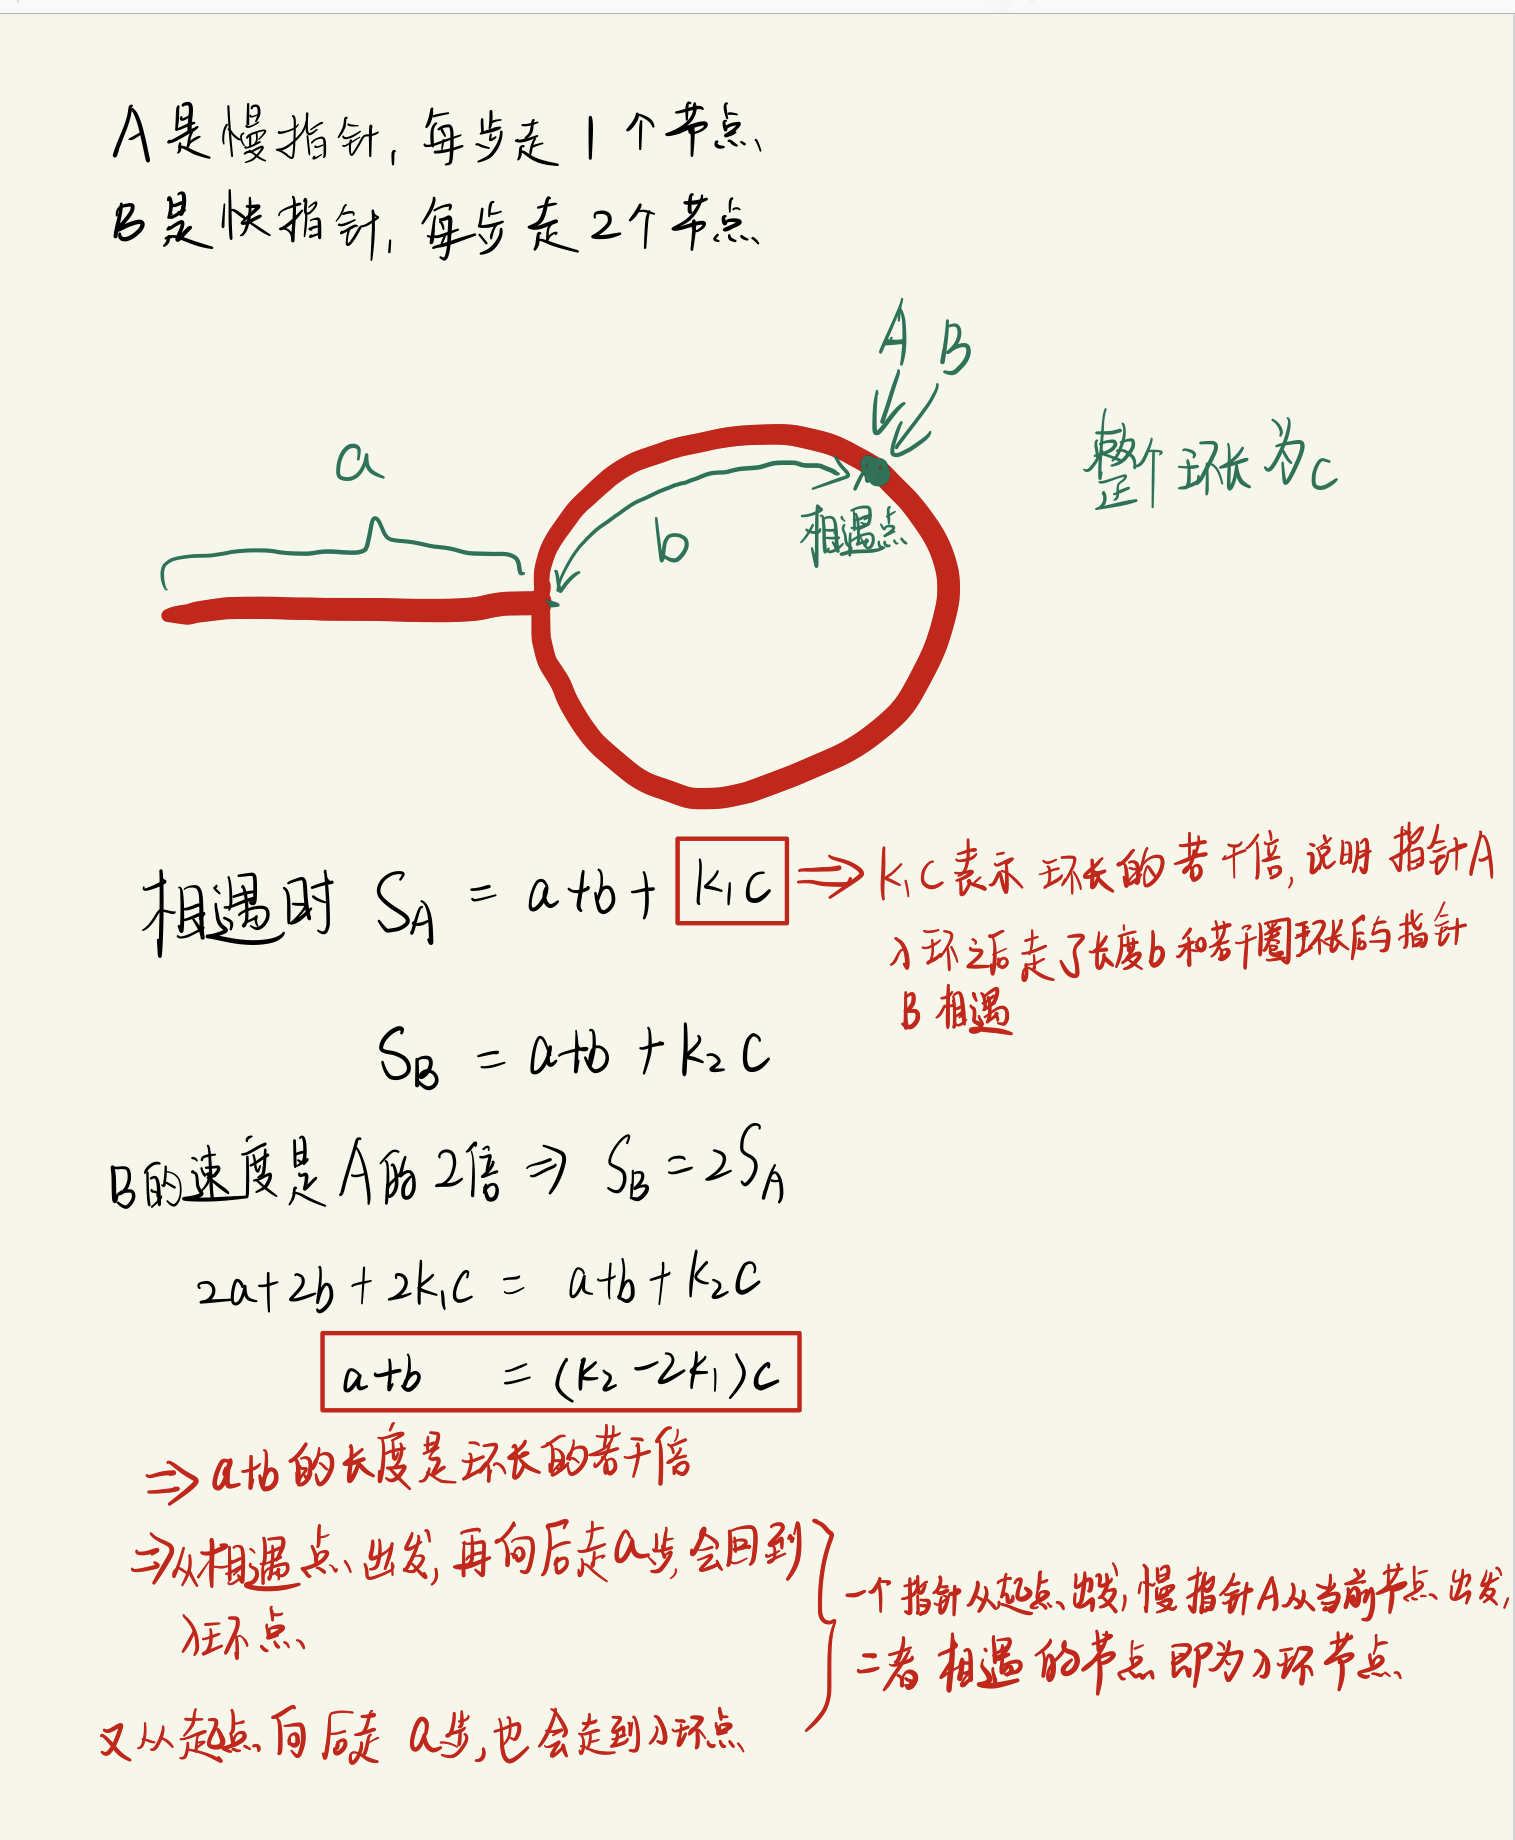 A是慢指针,每步走1个节点
B是快指针,每步走2个节点
A B
a
整个环长为c
b
相遇点
相遇时 S_A = a+b+ k₁c ⇒ k₁c表示环长的若干倍,说明指针A
入环之后走了长度b和若干圈环长后与指针
B相遇
S_B = a+b+k₂c
B的速度是A的2倍 ⇒ S_B=2S_A
2a+2b+2k₁c = a+b+k₂c
a+b = (k₂-2k₁)c
⇒a+b的长度是环长的若干倍
⇒从相遇点出发,再向后走a步,会回到
入环点
一个指针从起点出发,慢指针A从当前节点出发,
二者相遇的节点即为入环节点
又从起点向后走a步,也会走到入环点